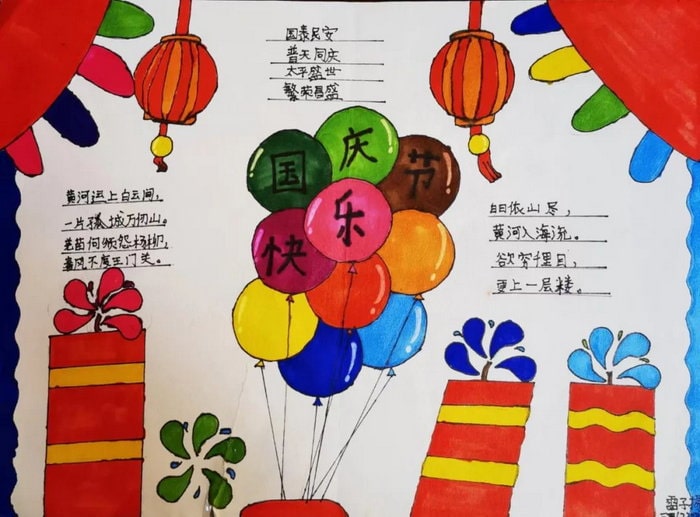 国泰民安
普天同庆
太平盛世
繁荣昌盛
国庆节
快乐
黄河远上白云间，
一片孤城万仞山。
羌笛何须怨杨柳，
春风不度玉门关。
白日依山尽，
黄河入海流。
欲穷千里目，
更上一层楼。
雷子